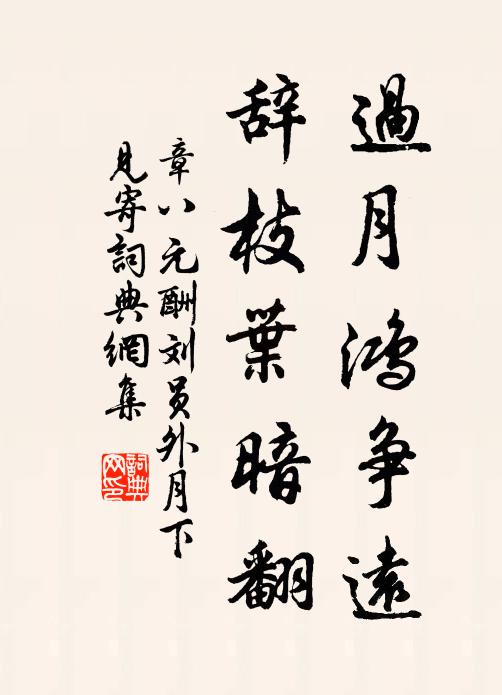 過月鴻争遠
辞枝葉暗翻
章八元酬刘员外月下
見寄詞典網集
詞典网印